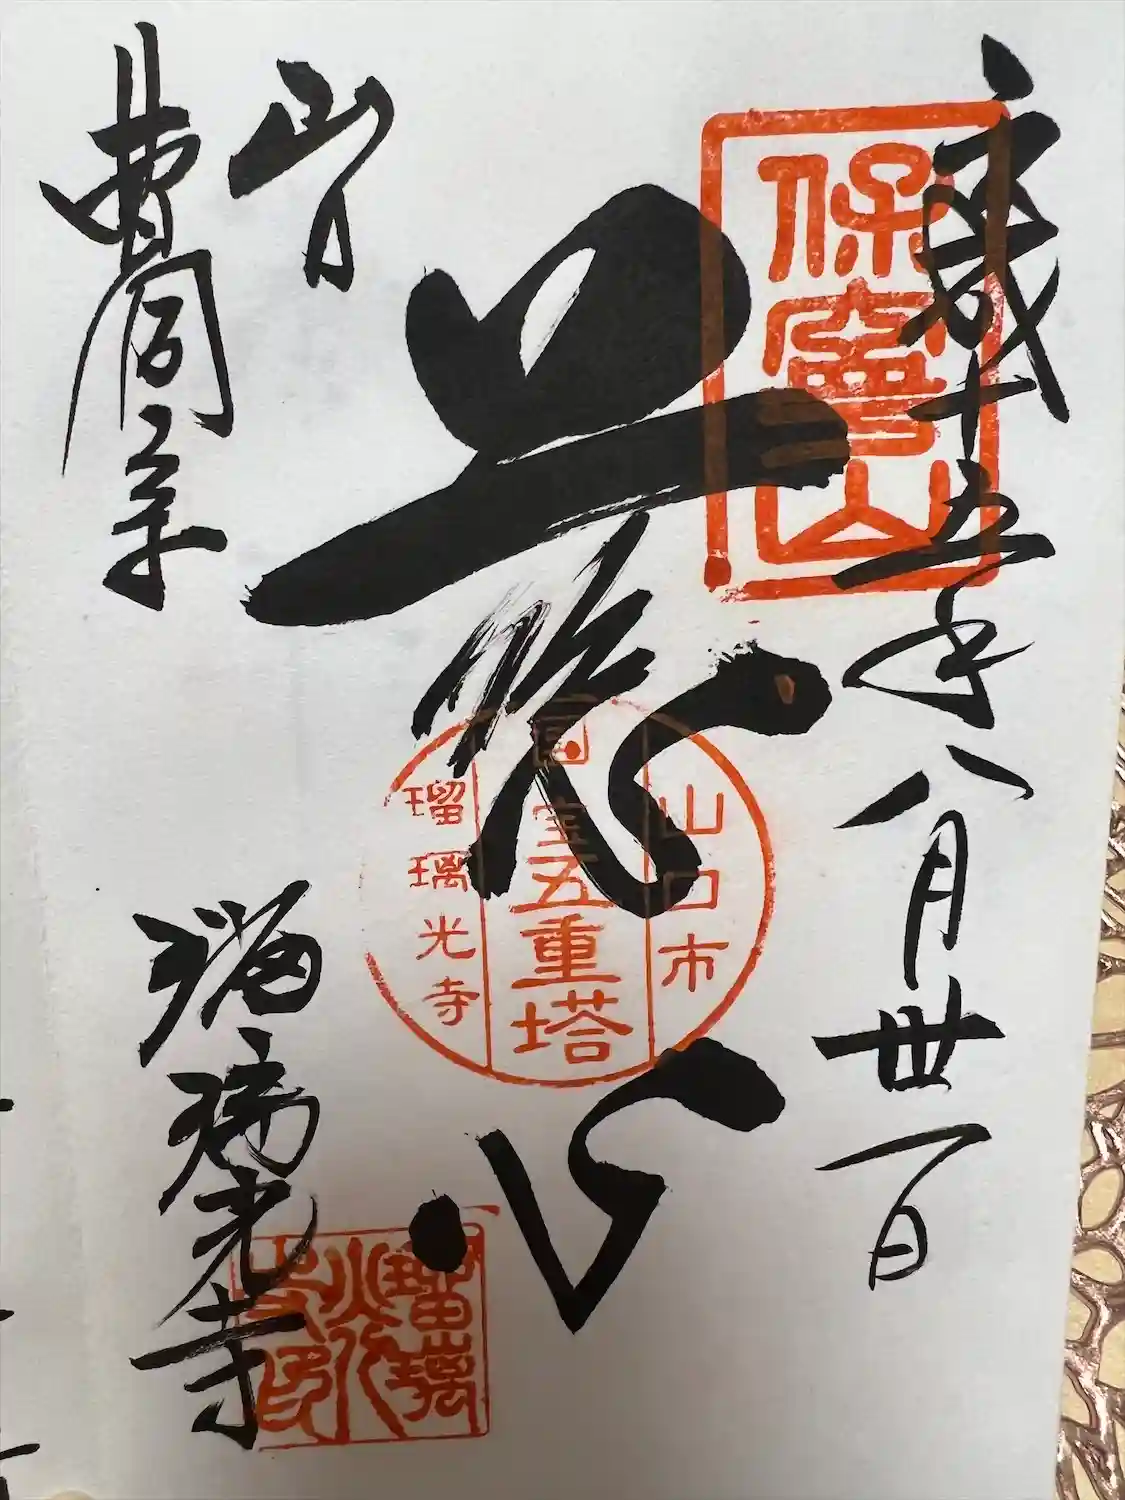 十五年八月卅一日
保寧山
心
山口市
国宝五重塔
瑠璃光寺
山口
曹洞宗
瑠璃光寺
瑠璃